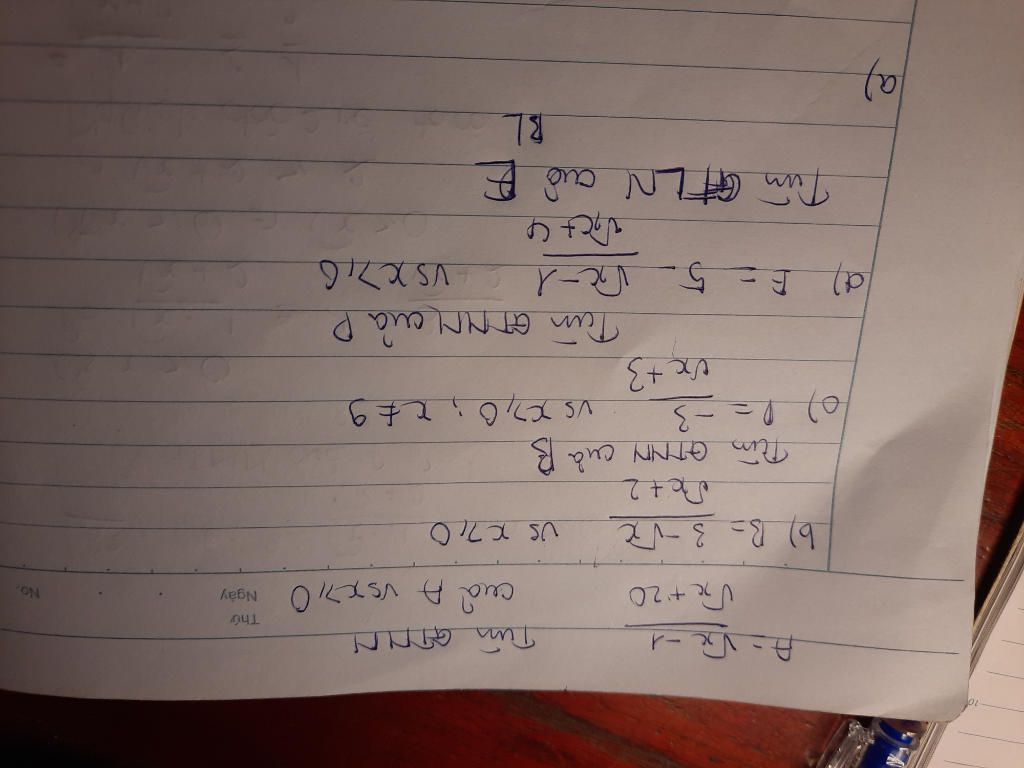 A = √x − 1 / √x + 20 Tìm GTNN
của A vs x ≥ 0
Thứ
Ngày
No.
b) B = 3 − √x / √x + 2 vs x ≥ 0
Tìm GTNN của B
c) P = −3 / √x + 3 vs x ≥ 0 ; x ≠ 9
Tìm GTNN của P
d) E = 5 − √x − 1 / √x + 4 vs x ≥ 0
Tìm GTLN của E
BL
a)